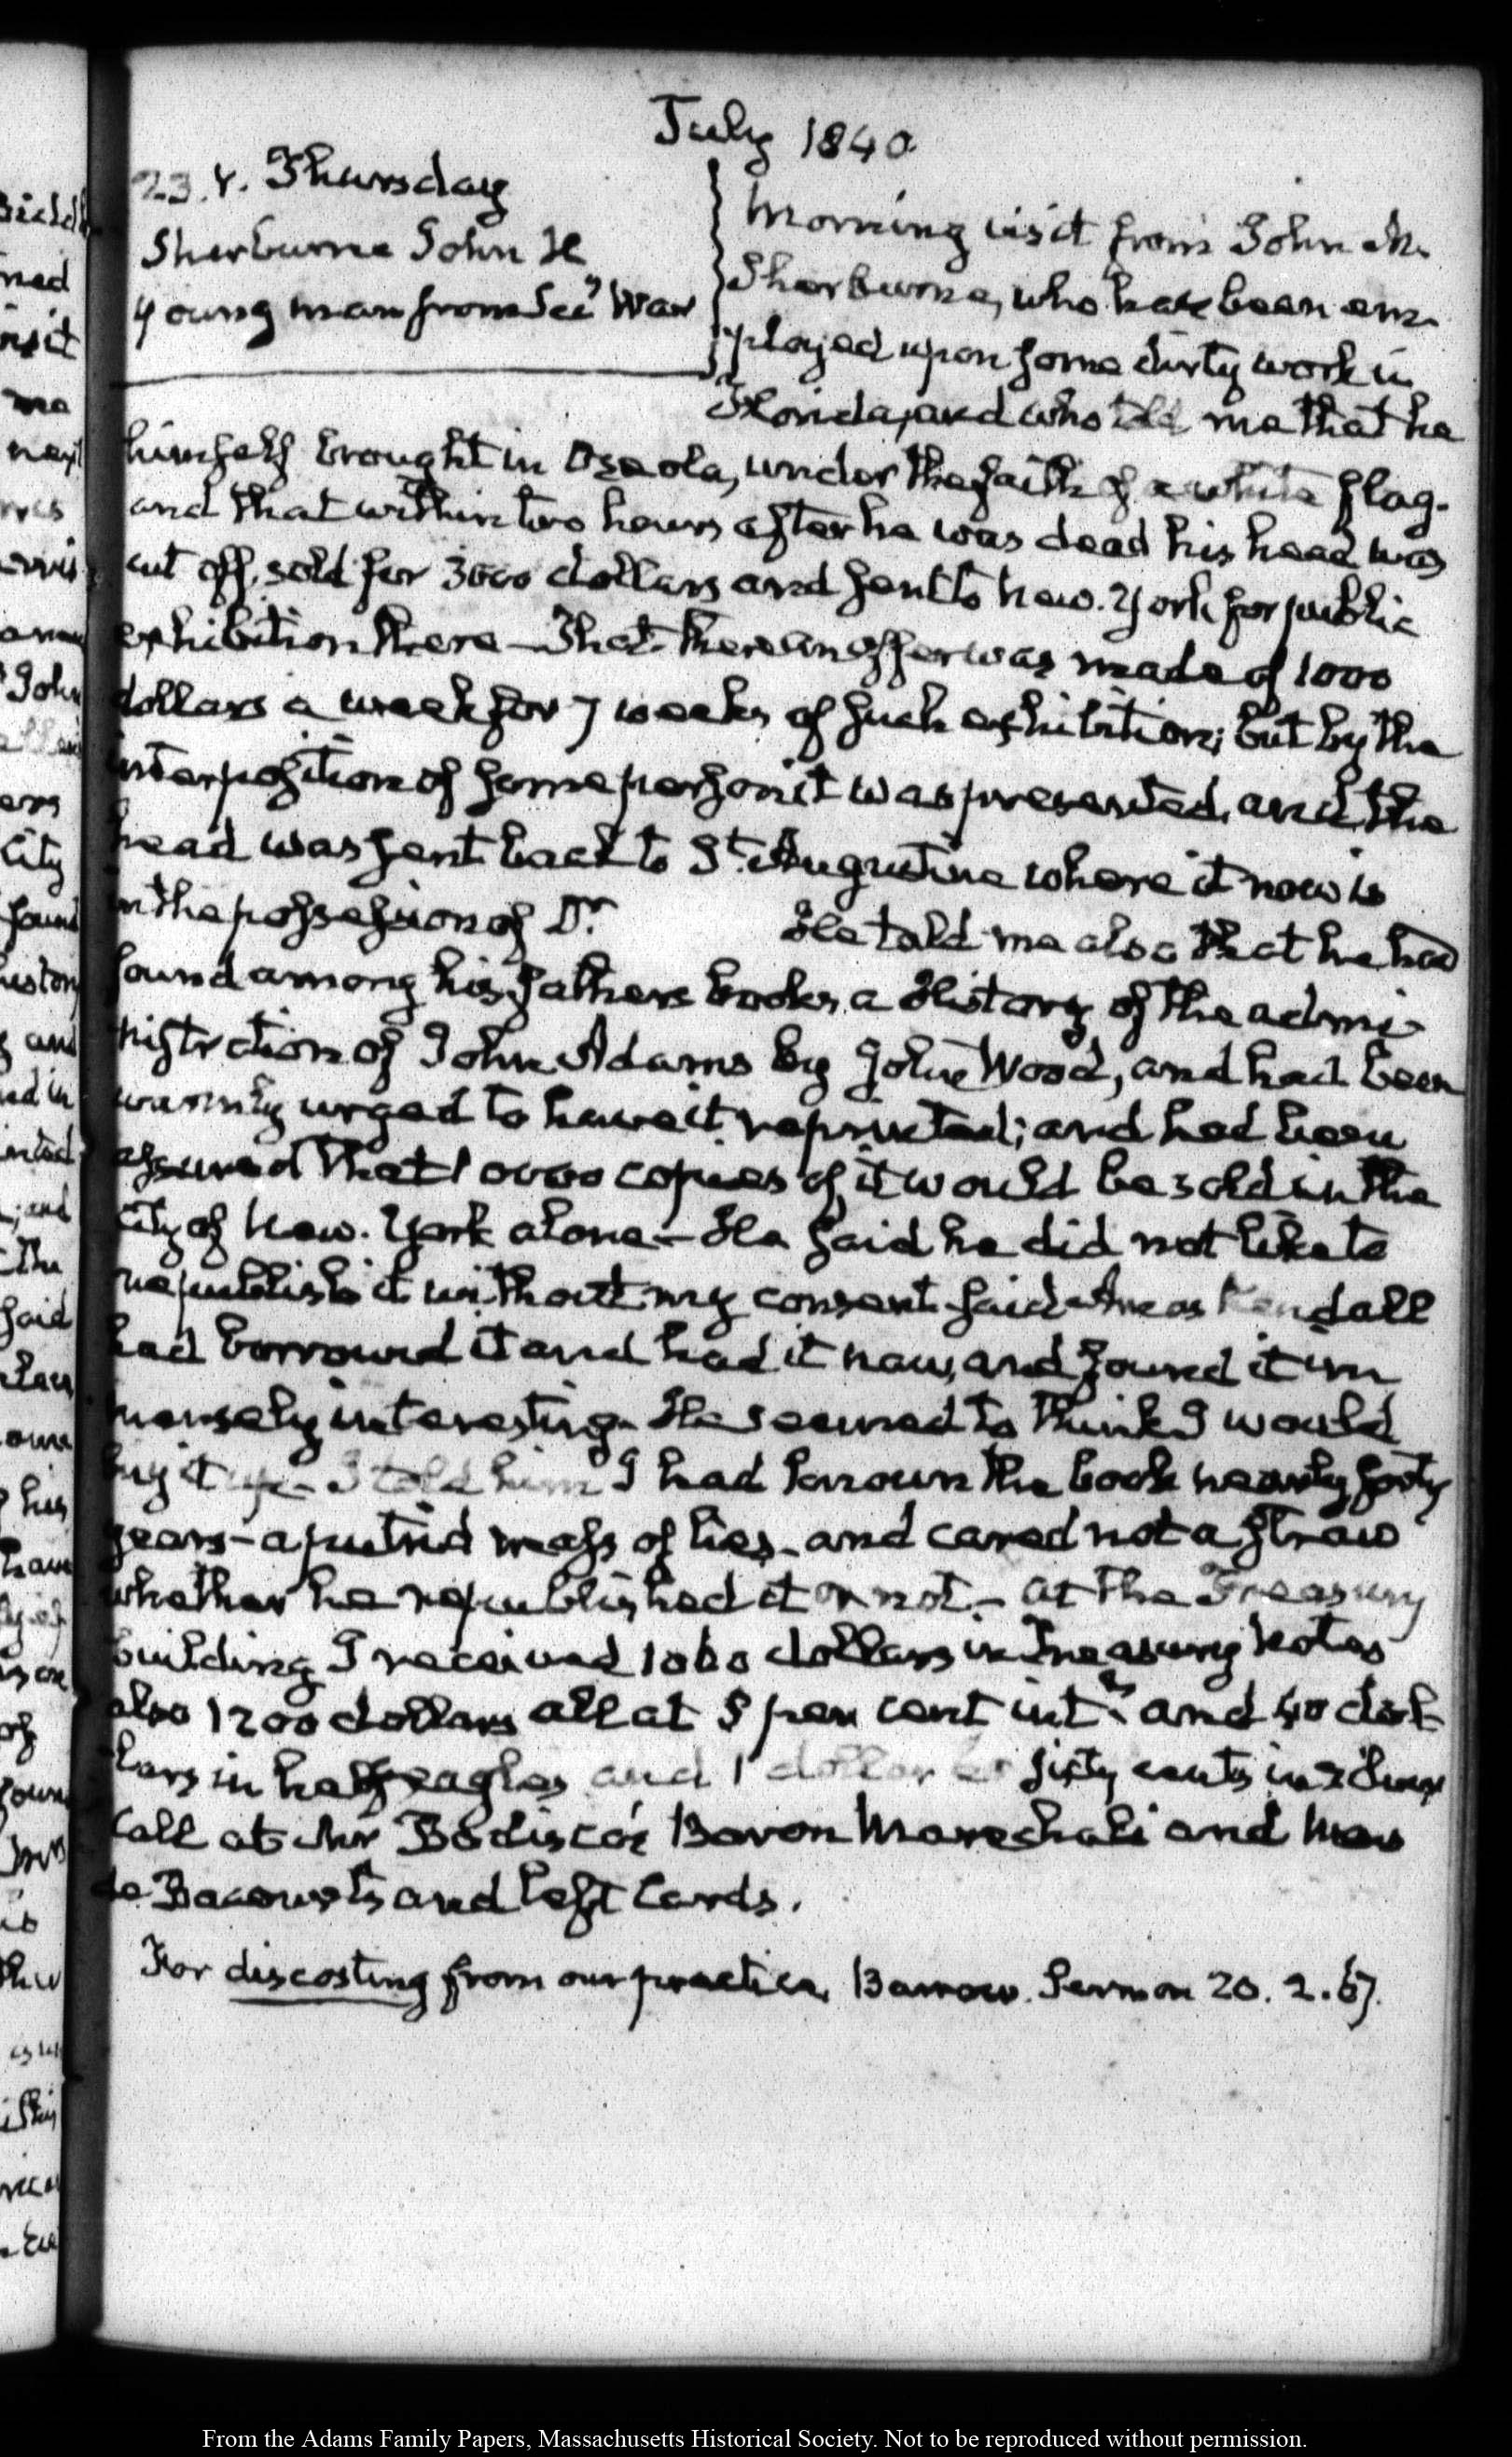 July 1840
23. V. Thursday
Sherburne John H
Young man from Secy War
Morning visit from John H.
Sherburne, who has been em-
ployed upon some dirty work in
Florida, and who told me that he
himself brought in Oseola, under the faith of a white flag.
and that within two hours after he was dead his head was
cut off, sold for 3000 dollars and sent to New-York for public
exhibition there – That there an offer was made of 1000
dollars a week for 7 weeks of such exhibition; but by the
interposition of some person it was prevented, and the
head was sent back to St. Augustine where it now is
in the possession of Dr.      He told me also that he had
found among his fathers books, a History of the admi-
nistration of John Adams by John Wood, and had been
warmly urged to have it reprinted; and had been
assured that 10000 copies of it would be sold in the
city of New-York alone – He said he did not like to
republish it without my consent said Amos Kendall
had borrowed it and had it now, and found it im
mensely interesting. He seemed to think I would
buy it up – I told him I had known the book nearly forty
years – a putrid mass of lies – and cared not a straw
whether he republished it or not. – At the Treasury
building I received 1000 dollars in Treasury Notes
also 1200 dollars all at 5 per cent int and 40 dol-
lars in half eagles and 1 dollar sixty cents in silver
Call at Mr Bodisco's, Baron Mareschal's and Mr
de Bacourt's and left Cards.
For discosting from our practice, Barrow. Sermon 20. 2. 67.
From the Adams Family Papers, Massachusetts Historical Society. Not to be reproduced without permission.